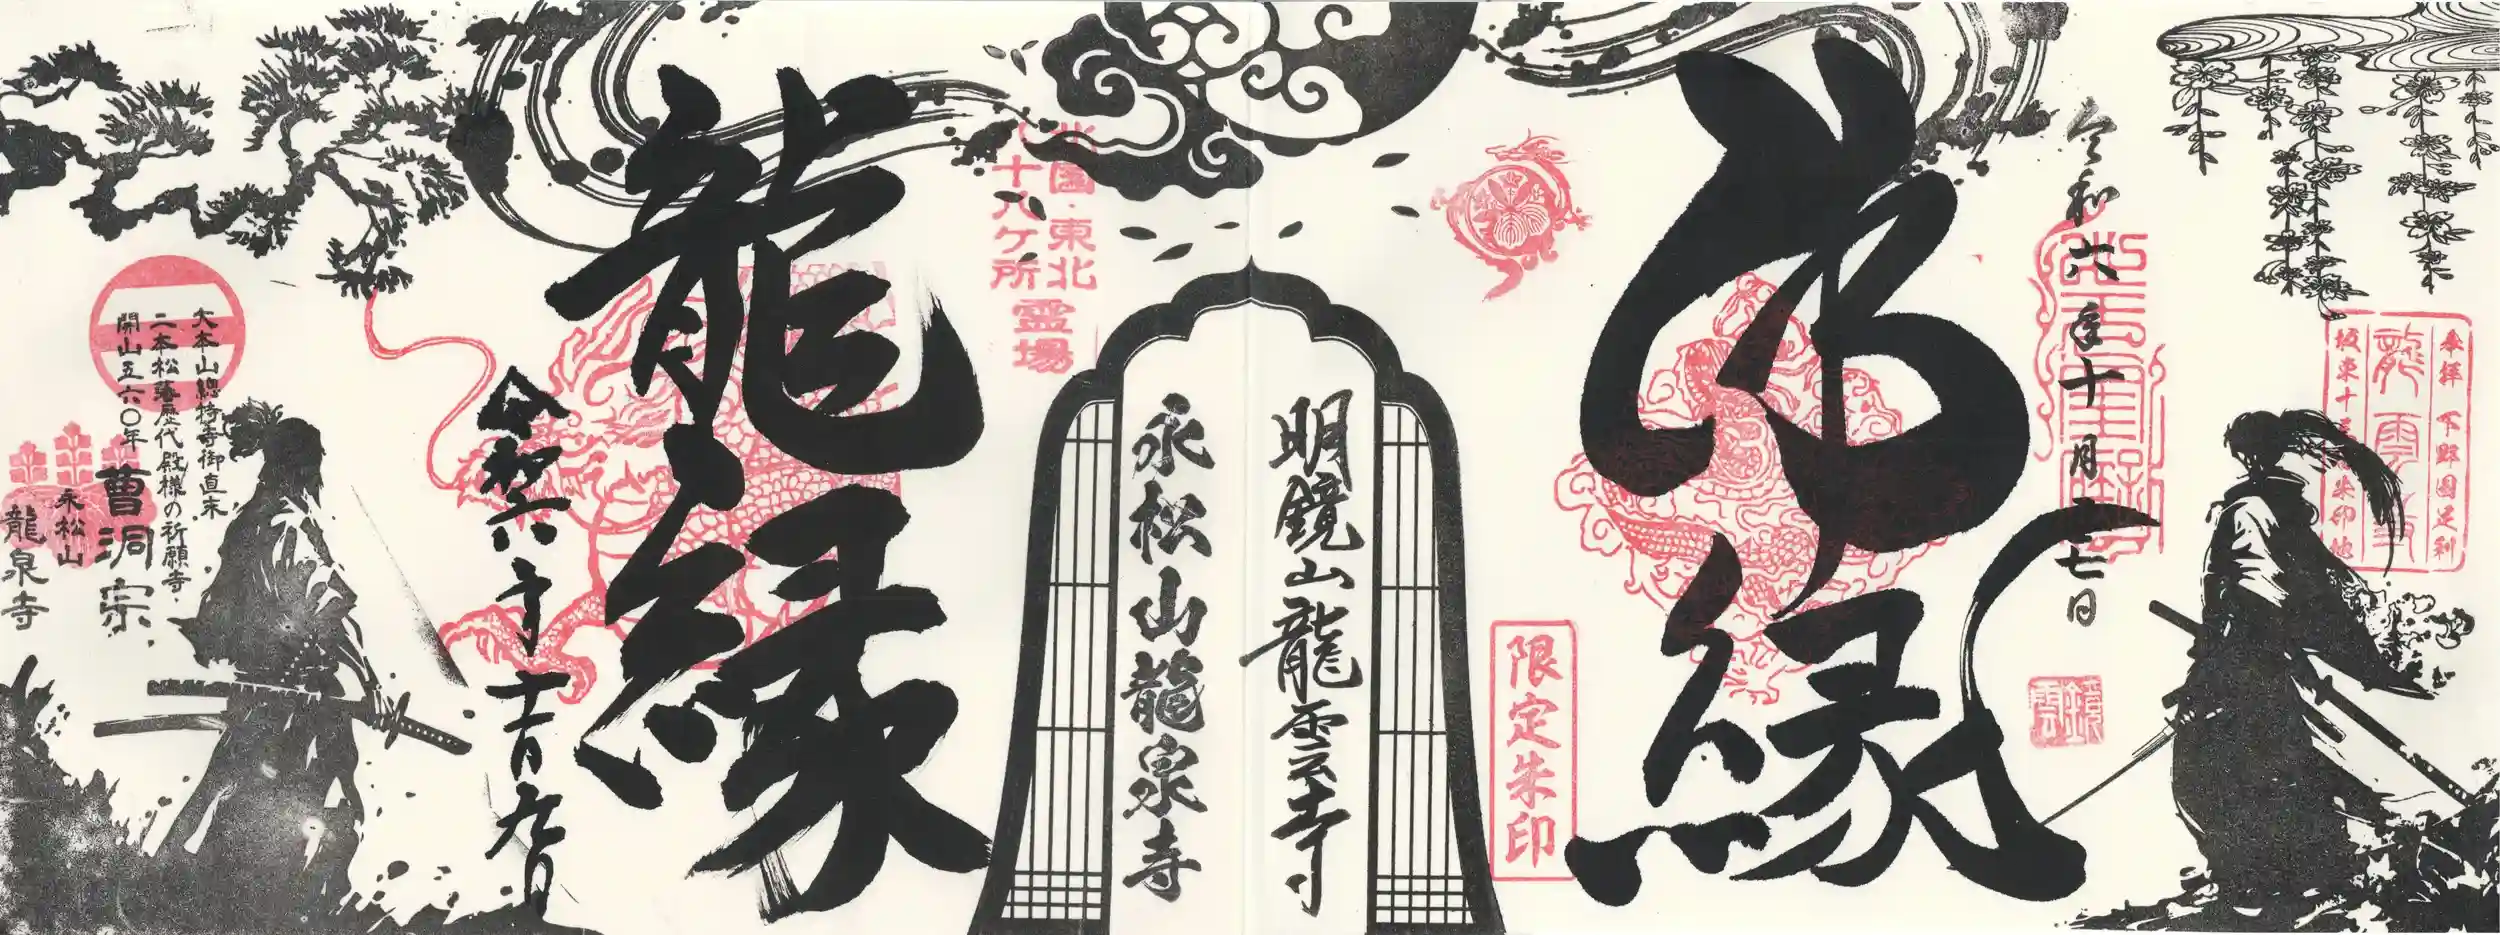 奉拝 下野国足利
龍雲寺
坂東十三
朱印地
令和六年十月二七日
縁
限定朱印
明鏡山龍雲寺
永松山龍泉寺
北国・東北
八十八ヶ所
霊場
龍縁
令和六年十一月九日
大本山總持寺御直末
二本松藩歴代殿様の祈願寺・
開山五六〇年
曹洞宗
永松山
龍泉寺